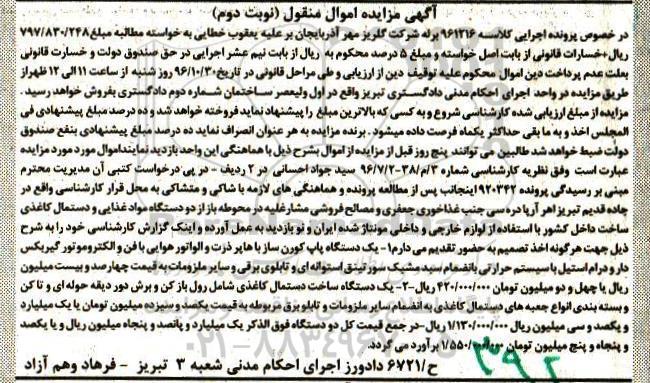 آگهی مزایده اموال منقول (نوبت دوم)
در خصوص پرونده اجرایی کلاسه ۹۶۱۲۱۶ برله شرکت گلریز مهر آذربایجان بر علیه یعقوب خطایی به خواسته مطالبه مبلغ ۷۹۷/۸۳۰/۲۴۸
ریال+خسارات قانونی از بابت اصل خواسته و مبلغ ۵ درصد محکوم به ریال از بابت نیم عشر اجرایی در حق صندوق دولت و خسارت قانونی
بعلت عدم پرداخت دین اموال محکوم علیه توقیف دین از ارزیابی و طی مراحل قانونی در تاریخ ۹۶/۱۰/۳۰ روز شنبه از ساعت ۱۱ الی ۱۲ ظهر از
طریق مزایده در واحد اجرای احکام مدنی دادگستری تبریز واقع در اول ولیعصر ساختمان شماره دوم دادگستری بفروش خواهد رسید.
مزایده از مبلغ ارزیابی شده کارشناسی شروع و به کسی که بالاترین مبلغ را پیشنهاد نماید فروخته خواهد شد و ده درصد مبلغ پیشنهادی فی
المجلس اخذ و به ما بقی حداکثر یکماه فرصت داده میشود. برنده مزایده به هر عنوان انصراف نماید ده درصد مبلغ پیشنهادی بنفع صندوق
دولت ضبط خواهد شد. طالبین می توانند پنج روز قبل از مزایده از اموال بشرح ذیل با هماهنگی این واحد بازدید نمایند اموال مورد مورد مزایده
عبارت است وفق نظریه کارشناسی شماره ۳/م/۳۸-۹۶/۷/۲ سید جواد احسانی در ۲ ردیف - در پی درخواست کتبی آن مدیریت محترم
مبنی بر رسیدگی پرونده ۹۲۰۳۴۲ اینجانب پس از مطالعه پرونده و هماهنگی های لازمه با شاکی و متشاکی به محل قرار کارشناسی واقع در
جاده قدیم تبریز اهر آرپا دره سی جنب غذاخوری جعفری و مصالح فروشی مشارعلیه در محوطه باز از دو دستگاه مواد غذایی و دستمال کاغذی
ساخت داخل کشور با استفاده از لوازم خارجی و داخلی مونتاژ شده ایران و نو بازدید به عمل آورده و اینک گزارش کارشناسی خود را به شرح
ذیل جهت هرگونه اخذ تصمیم به حضور تقدیم می دارم ۱- یک دستگاه پاپ کورن ساز با هاپر ذرت و الواتور هوایی با فن و الکتروموتور گیربکس
دار و درام استیل با سیستم حرارتی بانضمام سبد مشبک سورتینق استوانه ای و تابلوی برقی و سایر ملزومات به قیمت چهارصد و بیست میلیون
ریال یا چهل و دو میلیون تومان ۴۲۰/۰۰۰/۰۰۰ ریال-۲- یک دستگاه ساخت دستمال کاغذی شامل رول باز کن و برش دور دیقه حوله ای و تا کن
و بسته بندی انواع جعبه های دستمال کاغذی به انضمام سایر ملزومات و تابلو برق مربوطه به قیمت یکصد و سیزده میلیون تومان یا یک میلیارد
و یکصد و سی میلیون ریال ۱/۱۳۰/۰۰۰/۰۰۰ ریال-در جمع قیمت کل دو دستگاه فوق الذکر یک میلیارد و پانصد و پنجاه میلیون ریال و یا یکصد
و پنجاه و پنج میلیون تومان ۱/۵۵۰/۰۰۰/۰۰۰ برآورد می گردد.
ح/۶۷۲۱ دادورز اجرای احکام مدنی شعبه ۳ تبریز - فرهاد وهم آزاد